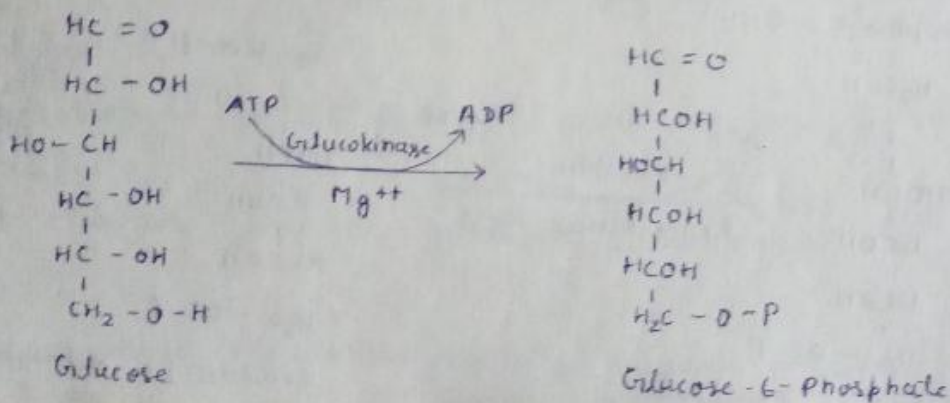 HC = O
HC - OH
HO - CH
HC - OH
HC - OH
CH2 - O - H
Glucose
ATP
ADP
Glucokinase
Mg++
HC = O
HCOH
HOCH
HCOH
HCOH
H2C - O - P
Glucose - 6 - Phosphate